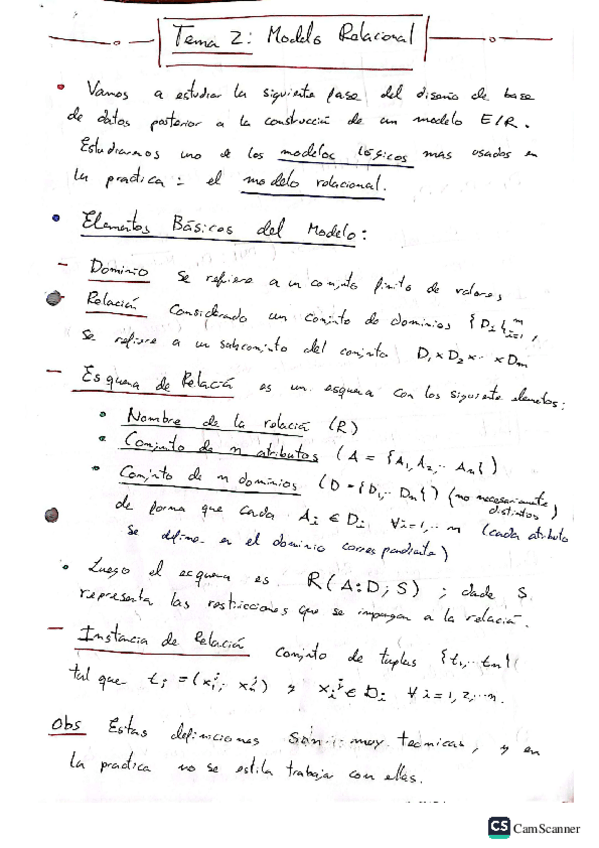 Tema 2: Modelo Relacional
• Vamos a estudiar la siguiente fase del diseño de base
de datos posterior a la construcción de un modelo E/R.
Estudiaremos uno de los modelos lógicos mas usados en
la practica: el modelo relacional.
• Elementos Básicos del Modelo:
- Dominio se refiere a un conjunto finito de valores
Relación Considerado un conjunto de dominios {Di}ⁿi=1,
se refiere a un subconjunto del conjunto D1 x D2 x ·· x Dm
- Esquema de Relación es un esquema con los siguiente elementos:
• Nombre de la relación (R)
• Conjunto de n atributos (A = {A1, A2, ·· An})
• Conjunto de n dominios (D = {D1, ·· Dn}) (no necesariamente
distintos)
de forma que cada Ai ∈ Di ∀i=1,·· n (cada atributo
se define en el dominio correspondiente)
• Luego el esquema es R(A:D; S) ; donde S
representa las restricciones que se impongan a la relación.
- Instancia de Relación conjunto de tuplas {t1, ·· tn}
tal que tj = (x1ʲ; xnʲ) y xiʲ ∈ Di ∀ i = 1, 2, ·· n.
Obs Estas definiciones son muy tecnicas, y en
la practica no se estila trabajar con ellas.
CS CamScanner